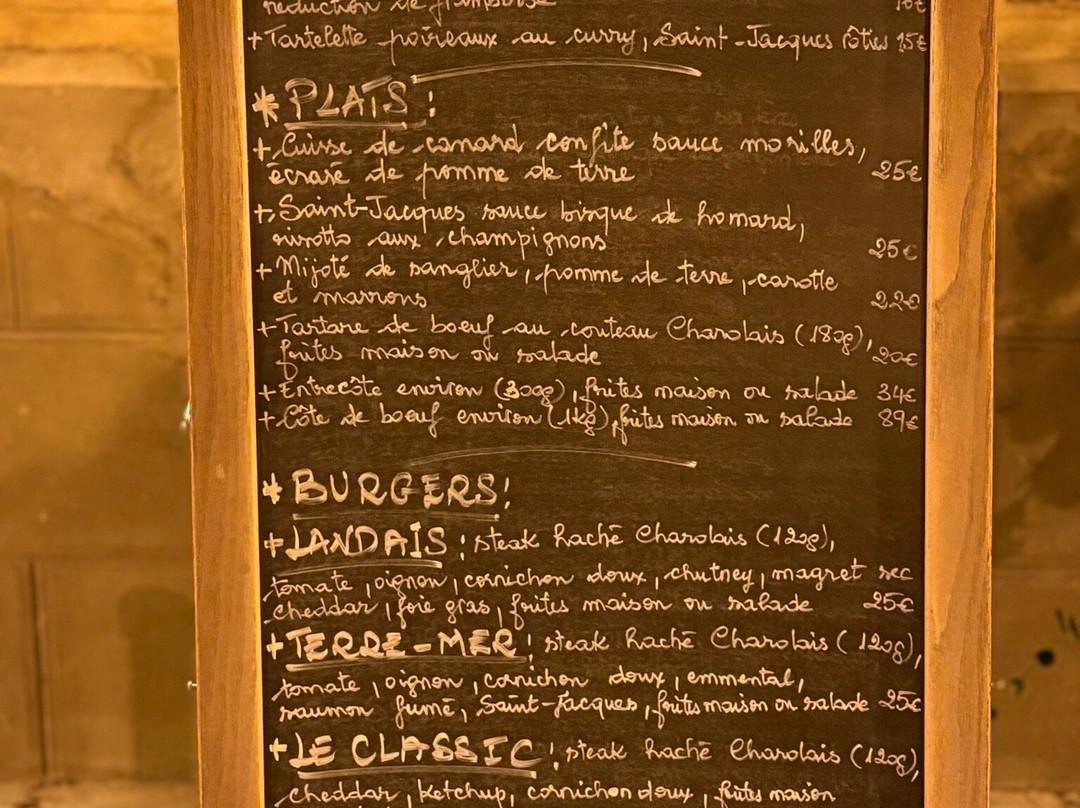 réduction de framboise 16€
+ Tartelette poireaux au curry, Saint-Jacques rôties 15€
* PLATS :
+ Cuisse de canard confite sauce morilles,
écrasé de pomme de terre 25€
+ Saint-Jacques sauce bisque de homard,
risotto aux champignons 25€
+ Mijoté de sanglier, pomme de terre, carotte
et marrons 22€
+ Tartare de boeuf au couteau Charolais (180g),
frites maison ou salade 20€
+ Entrecôte environ (300g), frites maison ou salade 34€
+ Côte de boeuf environ (1kg), frites maison ou salade 89€
* BURGERS :
+ LANDAIS : steak haché Charolais (120g),
tomate, oignon, cornichon doux, chutney, magret sec
cheddar, foie gras, frites maison ou salade 25€
+ TERRE-MER : steak haché Charolais (120g),
tomate, oignon, cornichon doux, emmental,
saumon fumé, Saint-Jacques, frites maison ou salade 25€
+ LE CLASSIC : steak haché Charolais (120g),
cheddar, ketchup, cornichon doux, frites maison